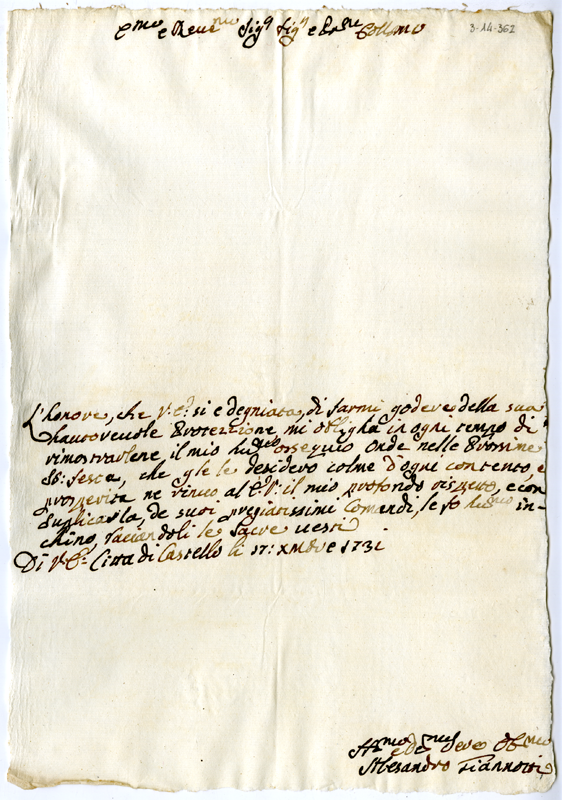 E.mo e Reue.mo Sig.r Sig.r e P.rne Coll.mo
3-14-362
L'honore, che V: E: si e degniata, di farmi godere della sua
hauoreuole Protezzione, mi obligha in ogni tempo di
rimostrarlene il mio hu.mo ossequio Onde nelle Prossime
SS: feste, che gle le desidero colme d'ogni contento, e
prosperita ne rinuo al E: V: il mio profondo rispetto, e con
suplicarla, de suoi pregiatissimi Comandi, le fo hu.mo in-
chino, baciandoli le Sacre uesti
Di V: E: Citta di Castello li 17: XMbre 1731
Deuo Ob.mo
Alesandro Giannotti